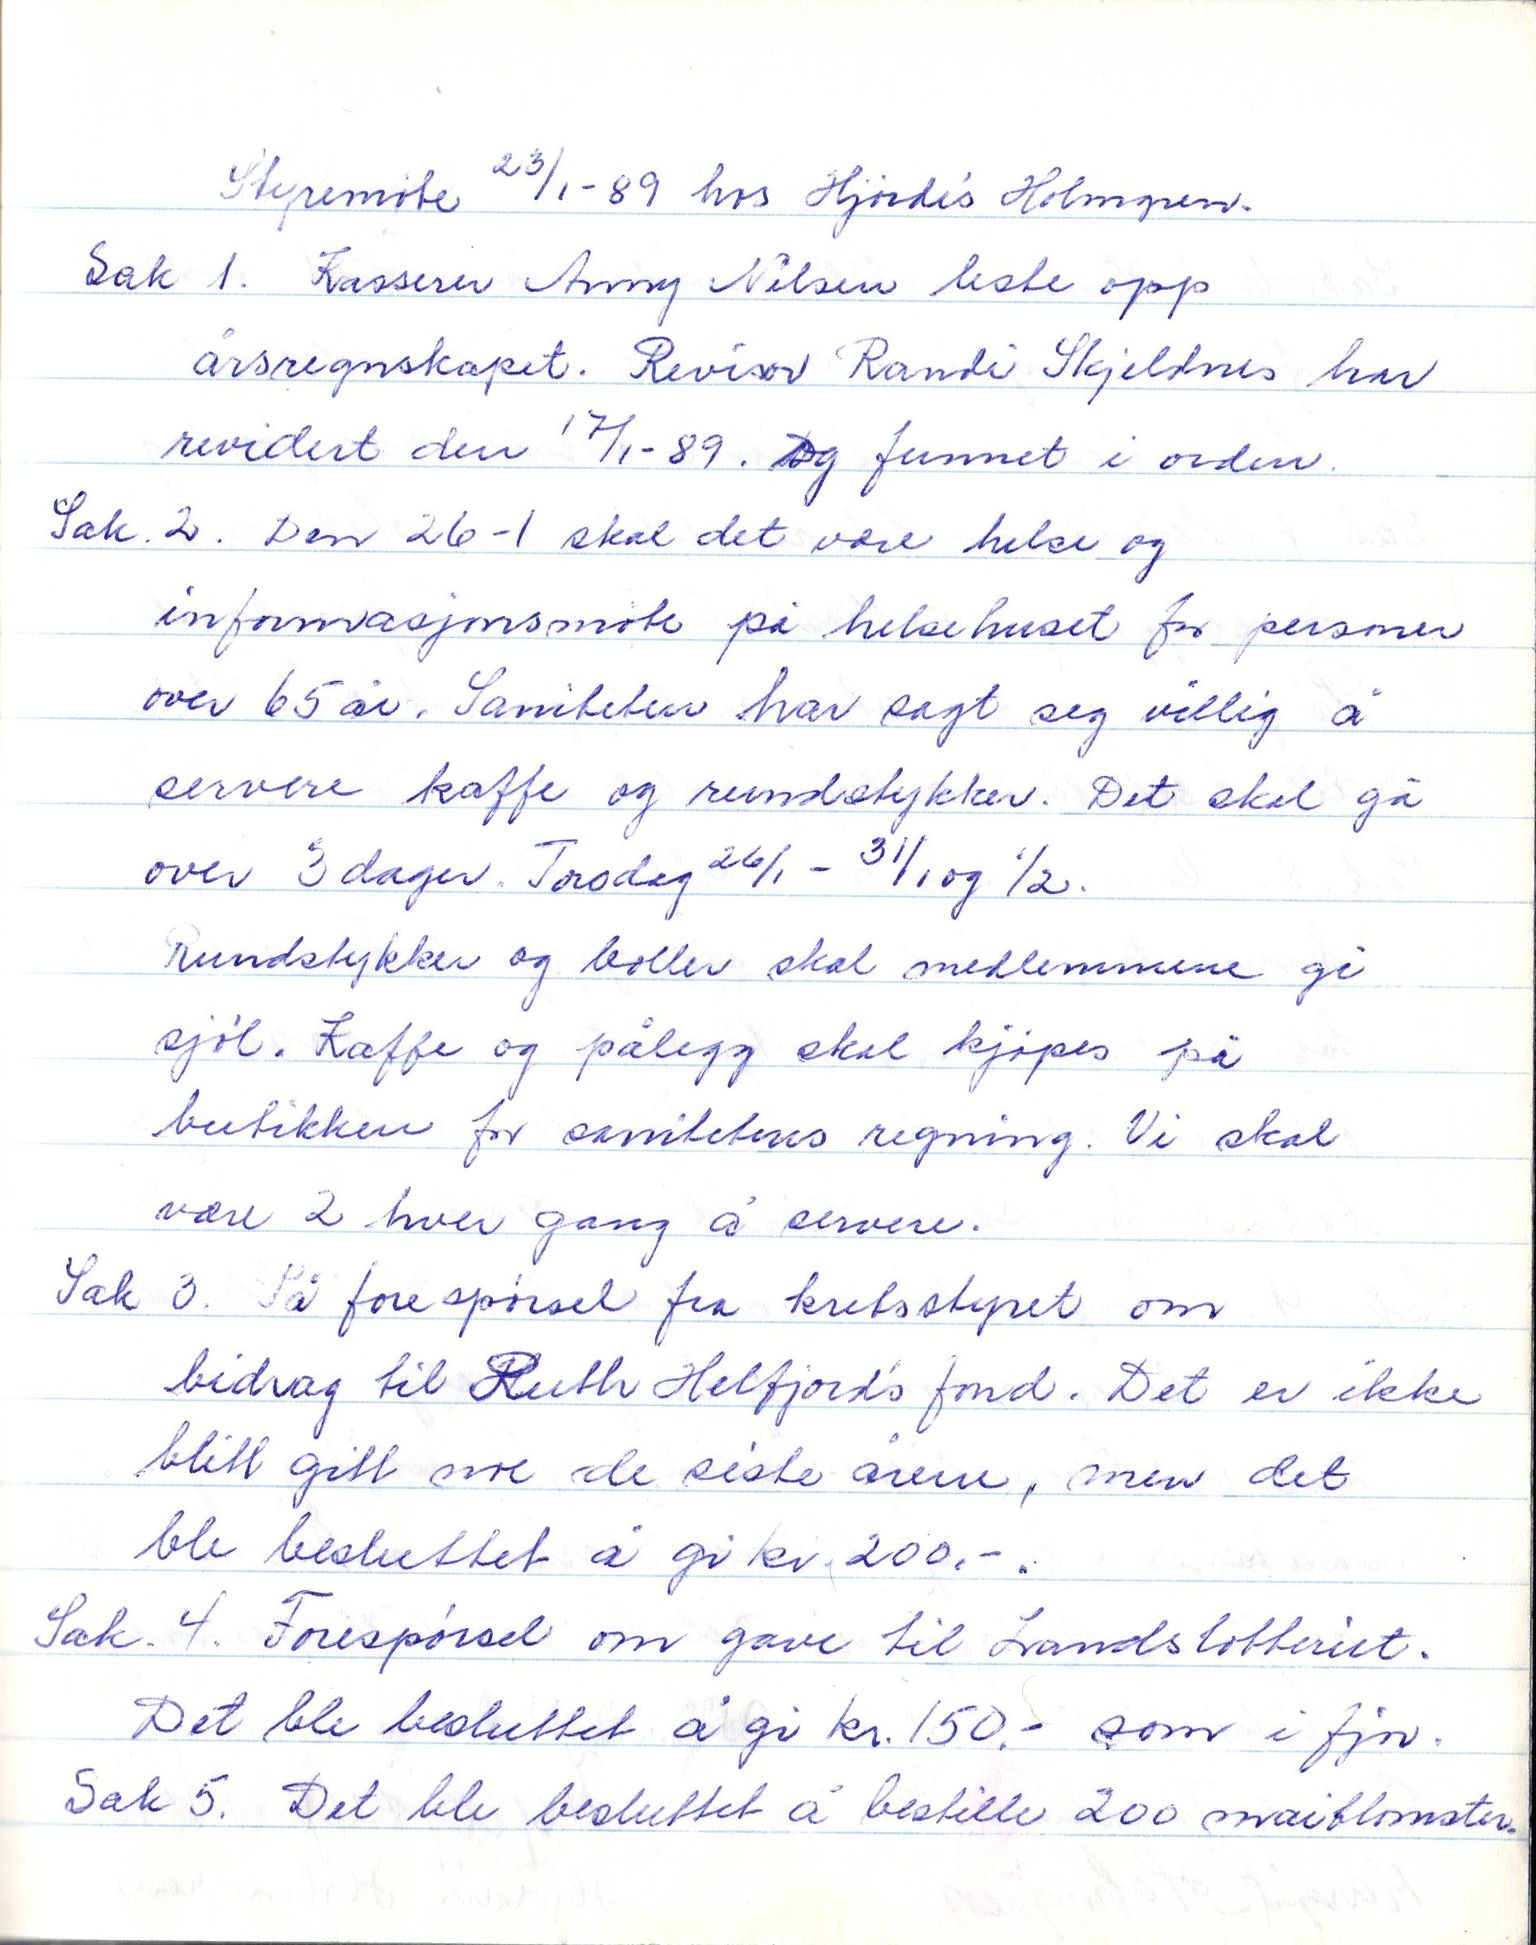 Styremøte 23/1-89 hos Hjördis Holmgren.
Sak 1. Kasserer Anny Nilsen leste opp
årsregnskapet. Revisor Randi Skjeldnes har
revidert den 17/1-89. Og funnet i orden.
Sak. 2. Den 26-1 skal det være helse og
informasjonsmøte på helsehuset for personer
over 65 år. Saniteten har sagt seg villig å
servere kaffe og rundstykker. Det skal gå
over 3 dager. Torsdag 26/1 - 31/1 og 1/2.
Rundstykker og boller skal medlemmene gi
sjøl. Kaffe og pålegg skal kjøpes på
butikken for sanitetens regning. Vi skal
være 2 hver gang å servere.
Sak 3. Så forespørsel fra kretsstyret om
bidrag til Ruth Helfjord's fond. Det er ikke
blitt gitt noe de siste årene, men det
ble besluttet å gi kr. 200.-.
Sak. 4. Forespørsel om gave til Landslotteriet.
Det ble besluttet å gi kr. 150.- som i fjor.
Sak 5. Det ble besluttet å bestille 200 maiblomster.